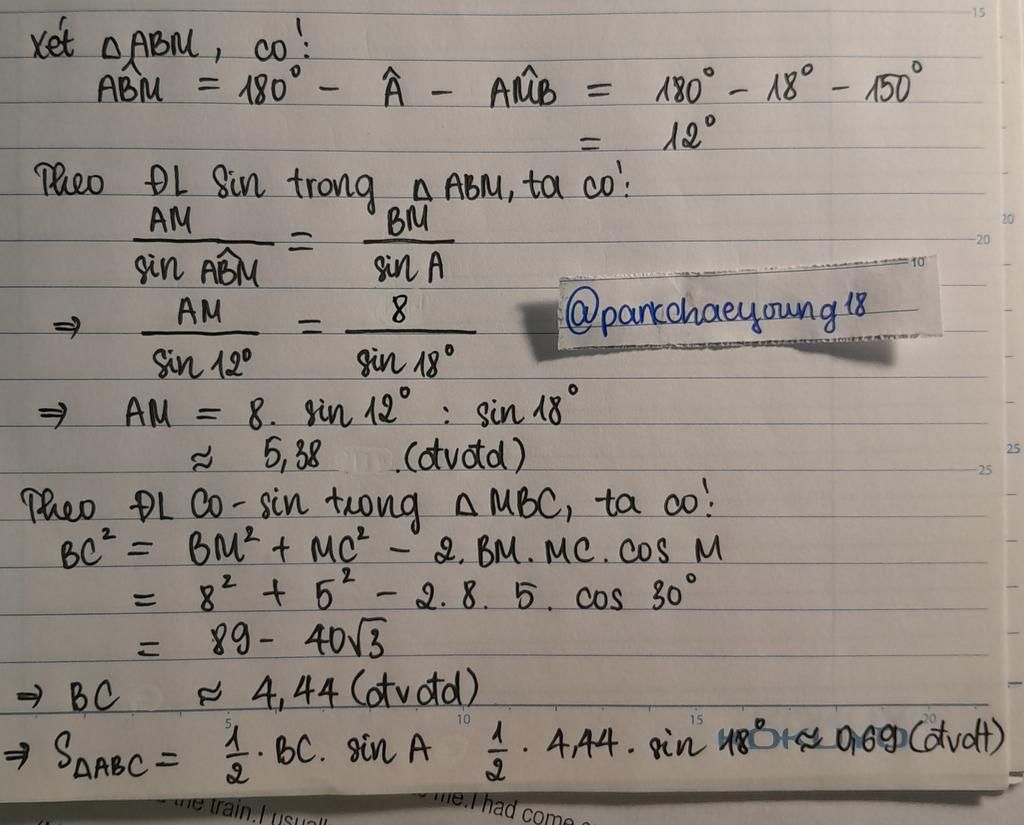 Xét △ABM, có:
AB̂M = 180° - Â - AM̂B = 180° - 18° - 150°
= 12°
Theo ĐL Sin trong △ABM, ta có:
AM / sin AB̂M = BM / sin A
⇒ AM / sin 12° = 8 / sin 18°
@parkchaeyoung18
⇒ AM = 8. sin 12° : sin 18°
≈ 5,38 (đvđd)
Theo ĐL Co-sin trong △MBC, ta có:
BC² = BM² + MC² - 2.BM.MC.cos M
= 8² + 5² - 2.8.5.cos 30°
= 89 - 40√3
⇒ BC ≈ 4,44 (đvđd)
⇒ S△ABC = 1/2 . BC. sin A 1/2 . 4,44. sin 18° ≈ 0,69 (đvdt)
the train. I usuall
me. I had come